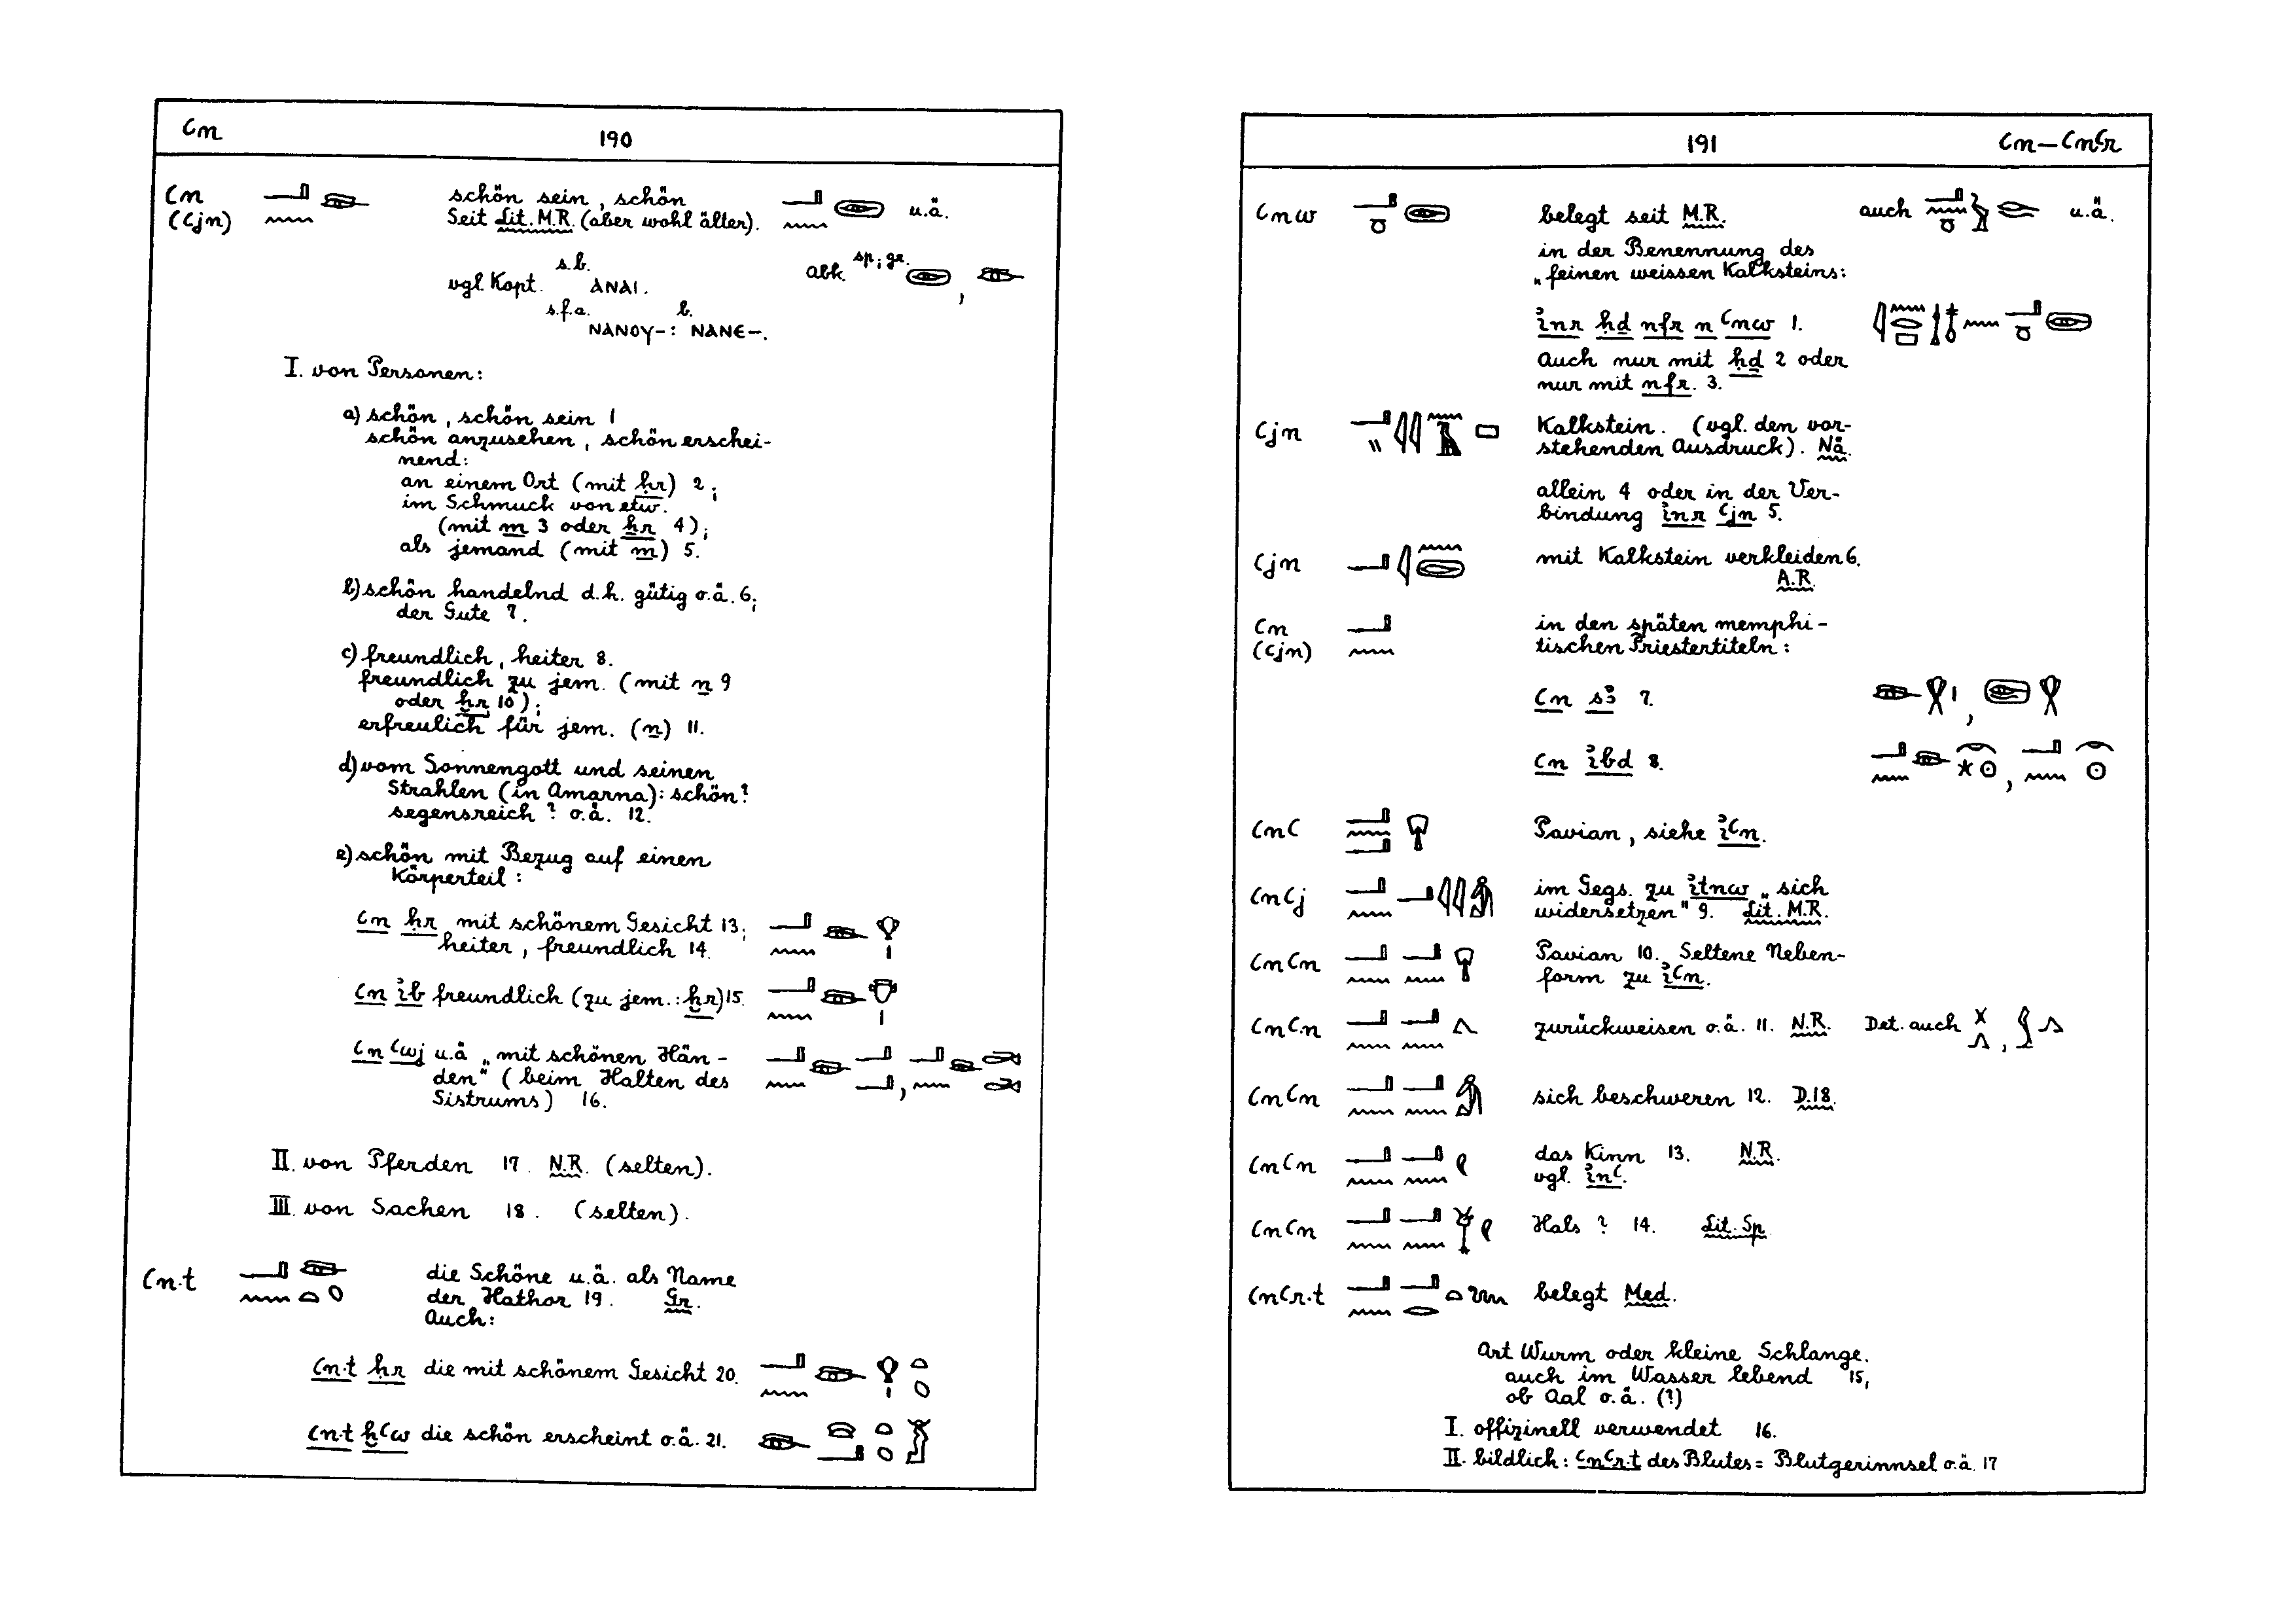 ꜥn
190
ꜥn
(ꜥjn)
schön sein, schön
Seit Lit. M.R. (aber wohl älter).
u.ä.
vgl. Kopt. s.b. ⲀⲚⲀⲒ.
abk. sp; gr. ,
s.f.a. ⲚⲀⲚⲞⲨ–: b. ⲚⲀⲚⲈ–.
I. von Personen:
a) schön, schön sein 1
schön anzusehen, schön erschei-
nend:
an einem Ort (mit ḥr) 2;
im Schmuck von etw.
(mit m 3 oder ẖr 4);
als jemand (mit m) 5.
b) schön handelnd d.h. gütig o.ä. 6;
der Gute 7.
c) freundlich, heiter 8.
freundlich zu jem. (mit n 9
oder ḫr 10);
erfreulich für jem. (n) 11.
d) vom Sonnengott und seinen
Strahlen (in Amarna): schön?
segensreich? o.ä. 12.
e) schön mit Bezug auf einen
Körperteil:
ꜥn ḥr mit schönem Gesicht 13;
heiter, freundlich 14.
ꜥn ỉb freundlich (zu jem.: ḫr) 15.
ꜥn ꜥwj u.ä „mit schönen Hän-
den" (beim Halten des
Sistrums) 16.
II. von Pferden 17. N.R. (selten).
III. von Sachen 18. (selten).
ꜥn.t
die Schöne u.ä. als Name
der Hathor 19. Gr.
Auch:
ꜥn.t ḥr die mit schönem Gesicht 20.
ꜥn.t ḫꜥw die schön erscheint o.ä. 21.
191
ꜥn–ꜥnꜥr
ꜥnw
belegt seit M.R.
auch u.ä.
in der Benennung des
„feinen weissen Kalksteins:
ỉnr ḥḏ nfr n ꜥnw 1.
Auch nur mit ḥḏ 2 oder
nur mit nfr. 3.
ꜥjn
Kalkstein. (vgl. den vor-
stehenden Ausdruck). Nä.
allein 4 oder in der Ver-
bindung ỉnr ꜥjn 5.
ꜥjn
mit Kalkstein verkleiden 6.
A.R.
ꜥn
(ꜥjn)
in den späten memphi-
tischen Priestertiteln:
ꜥn sꜣ 7.
ꜥn ỉbd 8.
ꜥnꜥ
Pavian, siehe ỉꜥn.
ꜥnꜥj
im Gegs. zu ỉtnw „sich
widersetzen" 9. Lit. M.R.
ꜥnꜥn
Pavian 10. Seltene Neben-
form zu ỉꜥn.
ꜥnꜥn
zurückweisen o.ä. 11. N.R. Det. auch ,
ꜥnꜥn
sich beschweren 12. D.18.
ꜥnꜥn
das Kinn 13. N.R.
vgl. ỉnꜥ.
ꜥnꜥn
Hals? 14. Lit. Sp.
ꜥnꜥr.t
belegt Med.
Art Wurm oder kleine Schlange.
auch im Wasser lebend 15,
ob Aal o.ä. (?)
I. offizinell verwendet 16.
II. bildlich: ꜥnꜥr.t des Blutes = Blutgerinnsel o.ä. 17